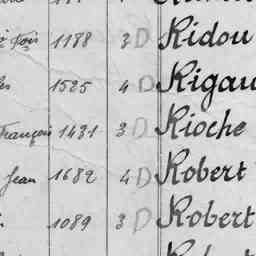 fois 1188 3 D Ridou
1525 4 D Rigau
François 1431 3 D Rioche
Jean 1682 4 D Robert
1089 3 D Robert